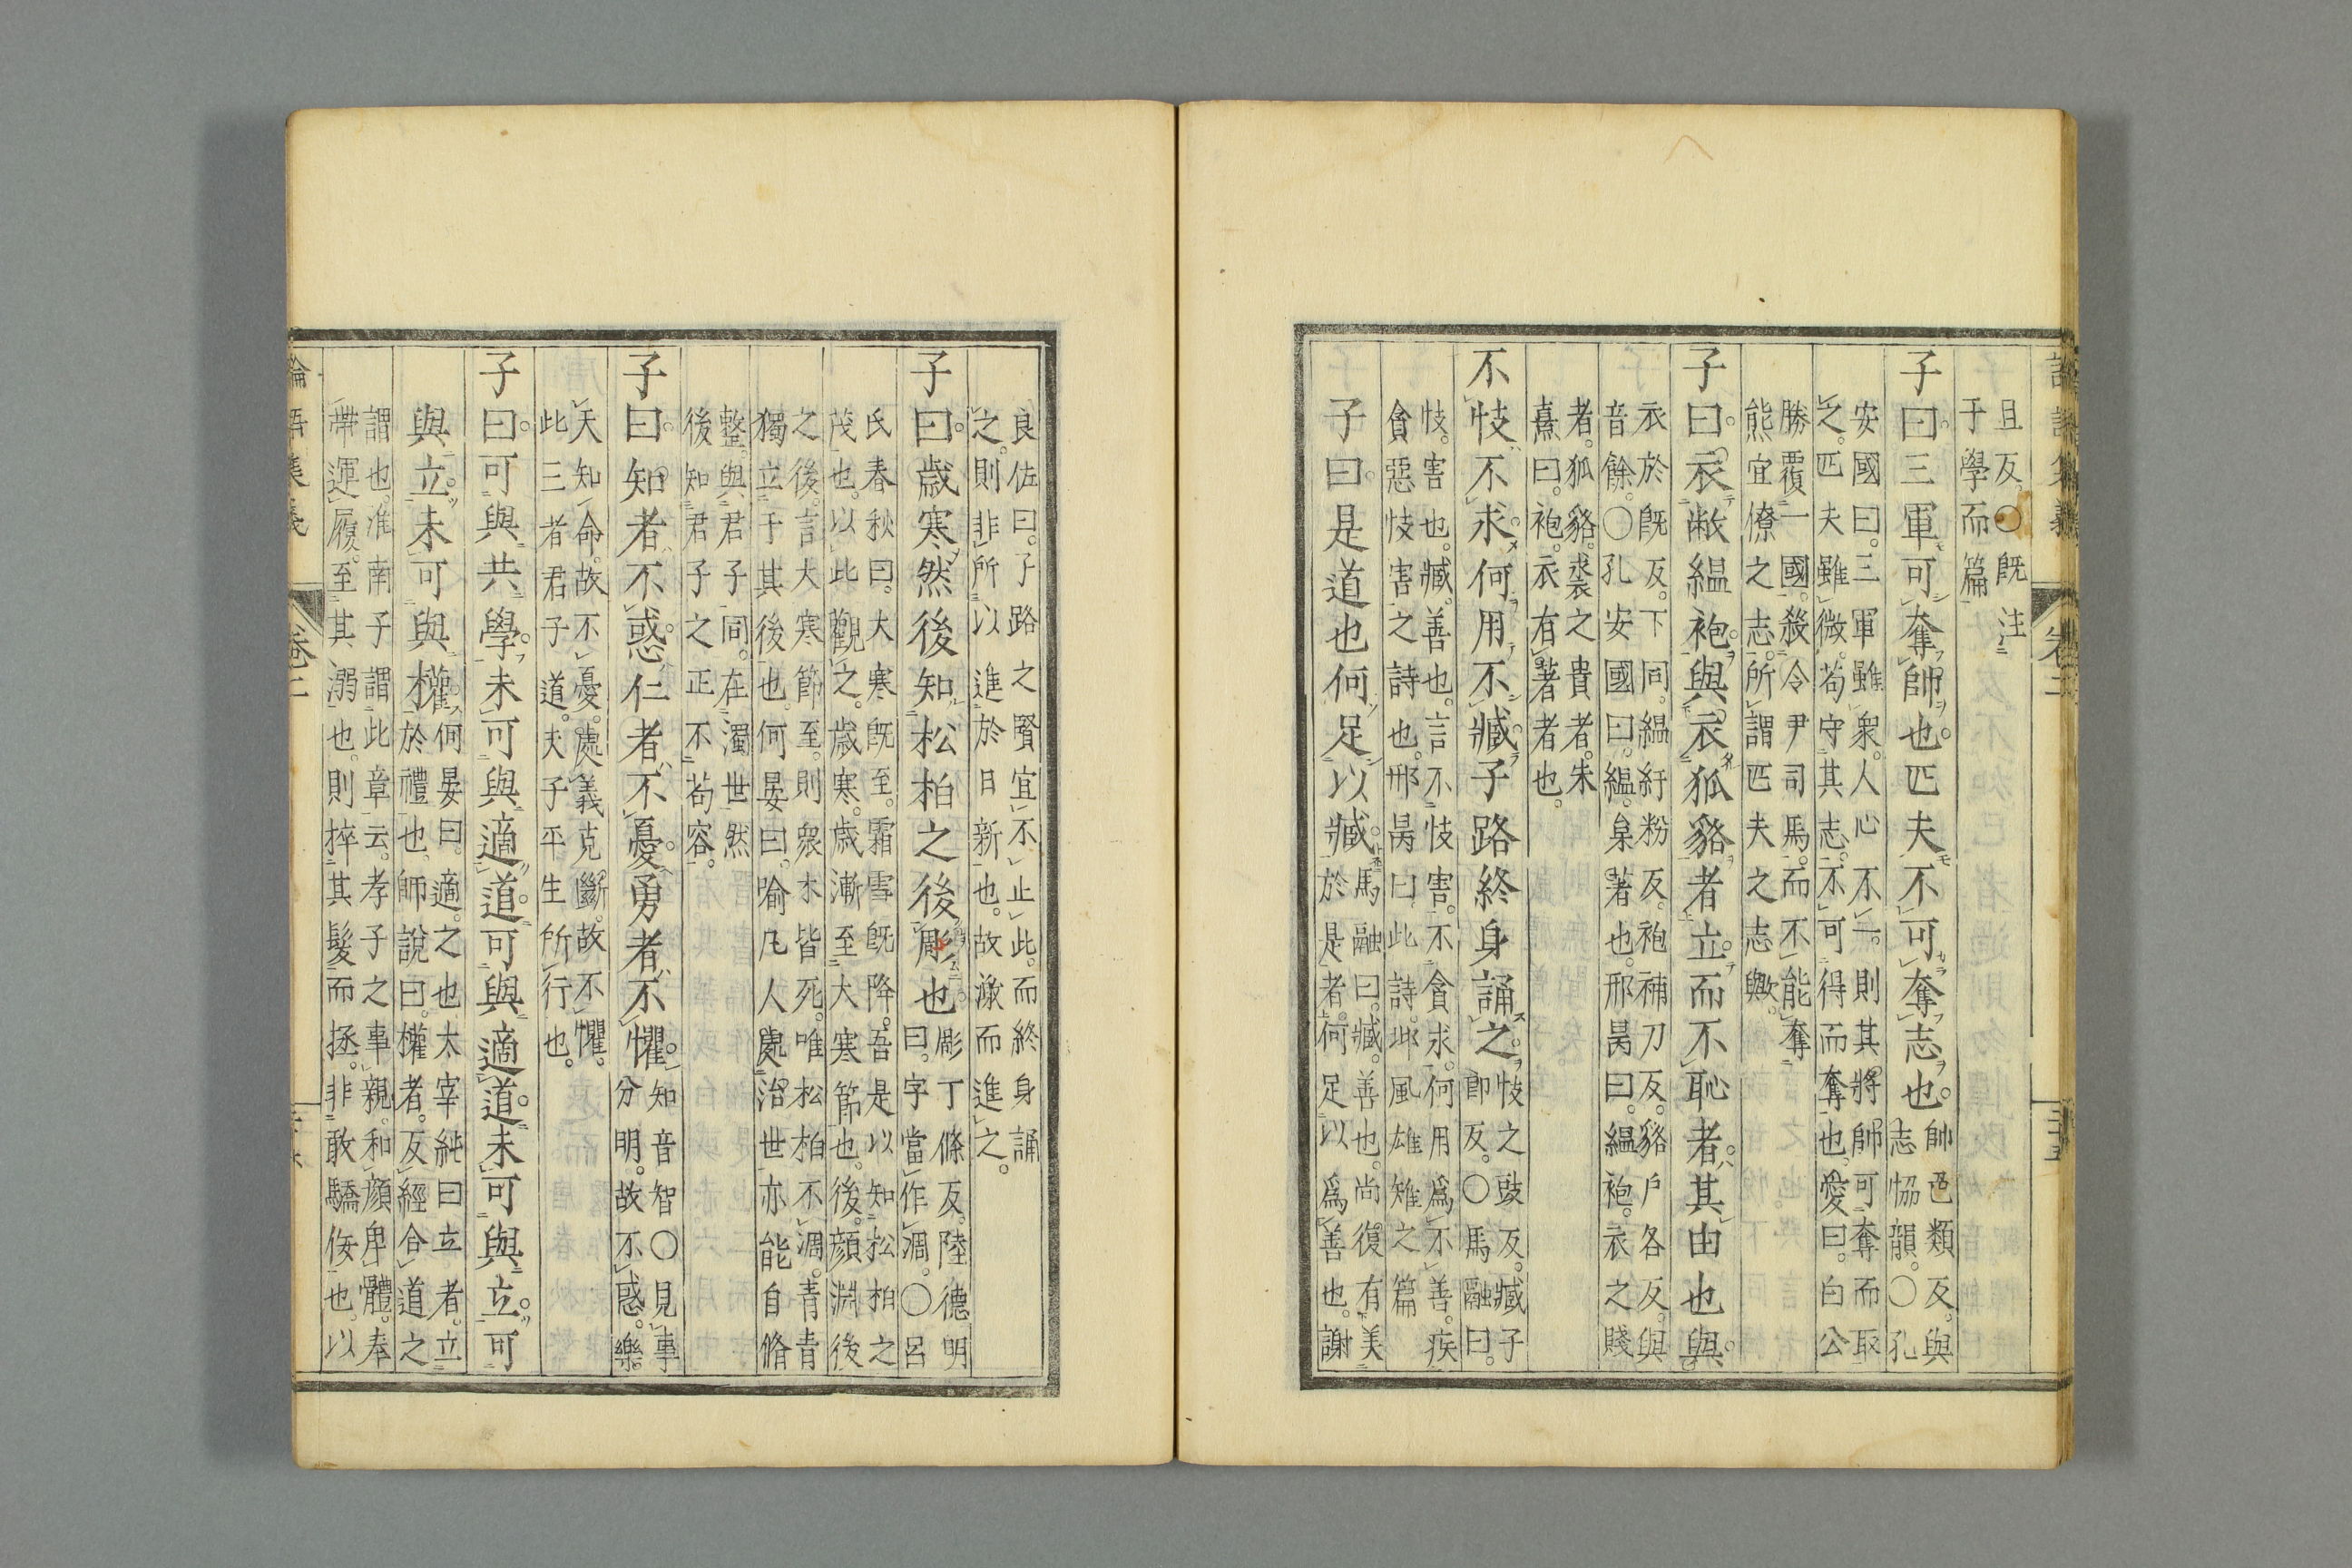 論語集義　卷二　三十五
且反。○既注
于學而篇
子曰。三軍可奪帥也。匹夫不可奪志也。
帥色類反。與
志恊韻。○孔
安國曰。三軍雖衆。人心不一。則其將帥可奪而取
之。匹夫雖微。苟守其志。不可得而奪也。愛曰。白公
勝覆一國。殺令尹司馬。而不能奪
熊宜僚之志。所謂匹夫之志與。
子曰。衣敝縕袍。與衣狐貉者立。而不恥者。其由也與。
衣於既反。下同。縕紆粉反。袍補刀反。貉戶各反。與
音餘。○孔安國曰。縕。枲著也。邢昺曰。縕袍。衣之賤
者。狐貉。裘之貴者。朱
熹曰。袍。衣有著者也。
不忮不求。何用不臧。子路終身誦之。
忮之豉反。臧子
卽反。○馬融曰。
忮。害也。臧。善也。言不忮害。不貪求。何用爲不善。疾
貪惡忮害之詩也。邢昺曰。此詩。邶風雄雉之篇
子曰。是道也何足以臧。
馬融曰。臧。善也。尚復有美
於是者。何足以爲善也。謝
良佐曰。子路之賢。宜不止此。而終身誦
之。則非所以進於日新也。故激而進之。
子曰。歲寒。然後知松柏之後彫也。
彫丁條反。陸德明
曰。字當作凋。○呂
氏春秋曰。大寒既至。霜雪既降。吾是以知松柏之
茂也。以此觀之。歲寒。歲漸至大寒節也。後。顏淵後
之後。言大寒節至。則衆木皆死。唯松柏不凋。青青
獨立于其後也。何晏曰。喻凡人處治世。亦能自脩
整。與君子同。在濁世。然
後知君子之正不苟容。
子曰。知者不惑。仁者不憂。勇者不懼。
知音智○見事
分明。故不惑。樂
天知命。故不憂。處義克斷。故不懼。
此三者君子道。夫子平生所行也。
子曰。可與共學。未可與適道。可與適道。未可與立。可
與立。未可與權。
何晏曰。適。之也。太宰純曰。立者。立
於禮也。師說曰。權者。反經合道之
謂也。淮南子謂此章云。孝子之事親。和顏卑體。奉
帶運履。至其溺也。則捽其髮而拯。非敢驕侫也。以
論語集義　卷二